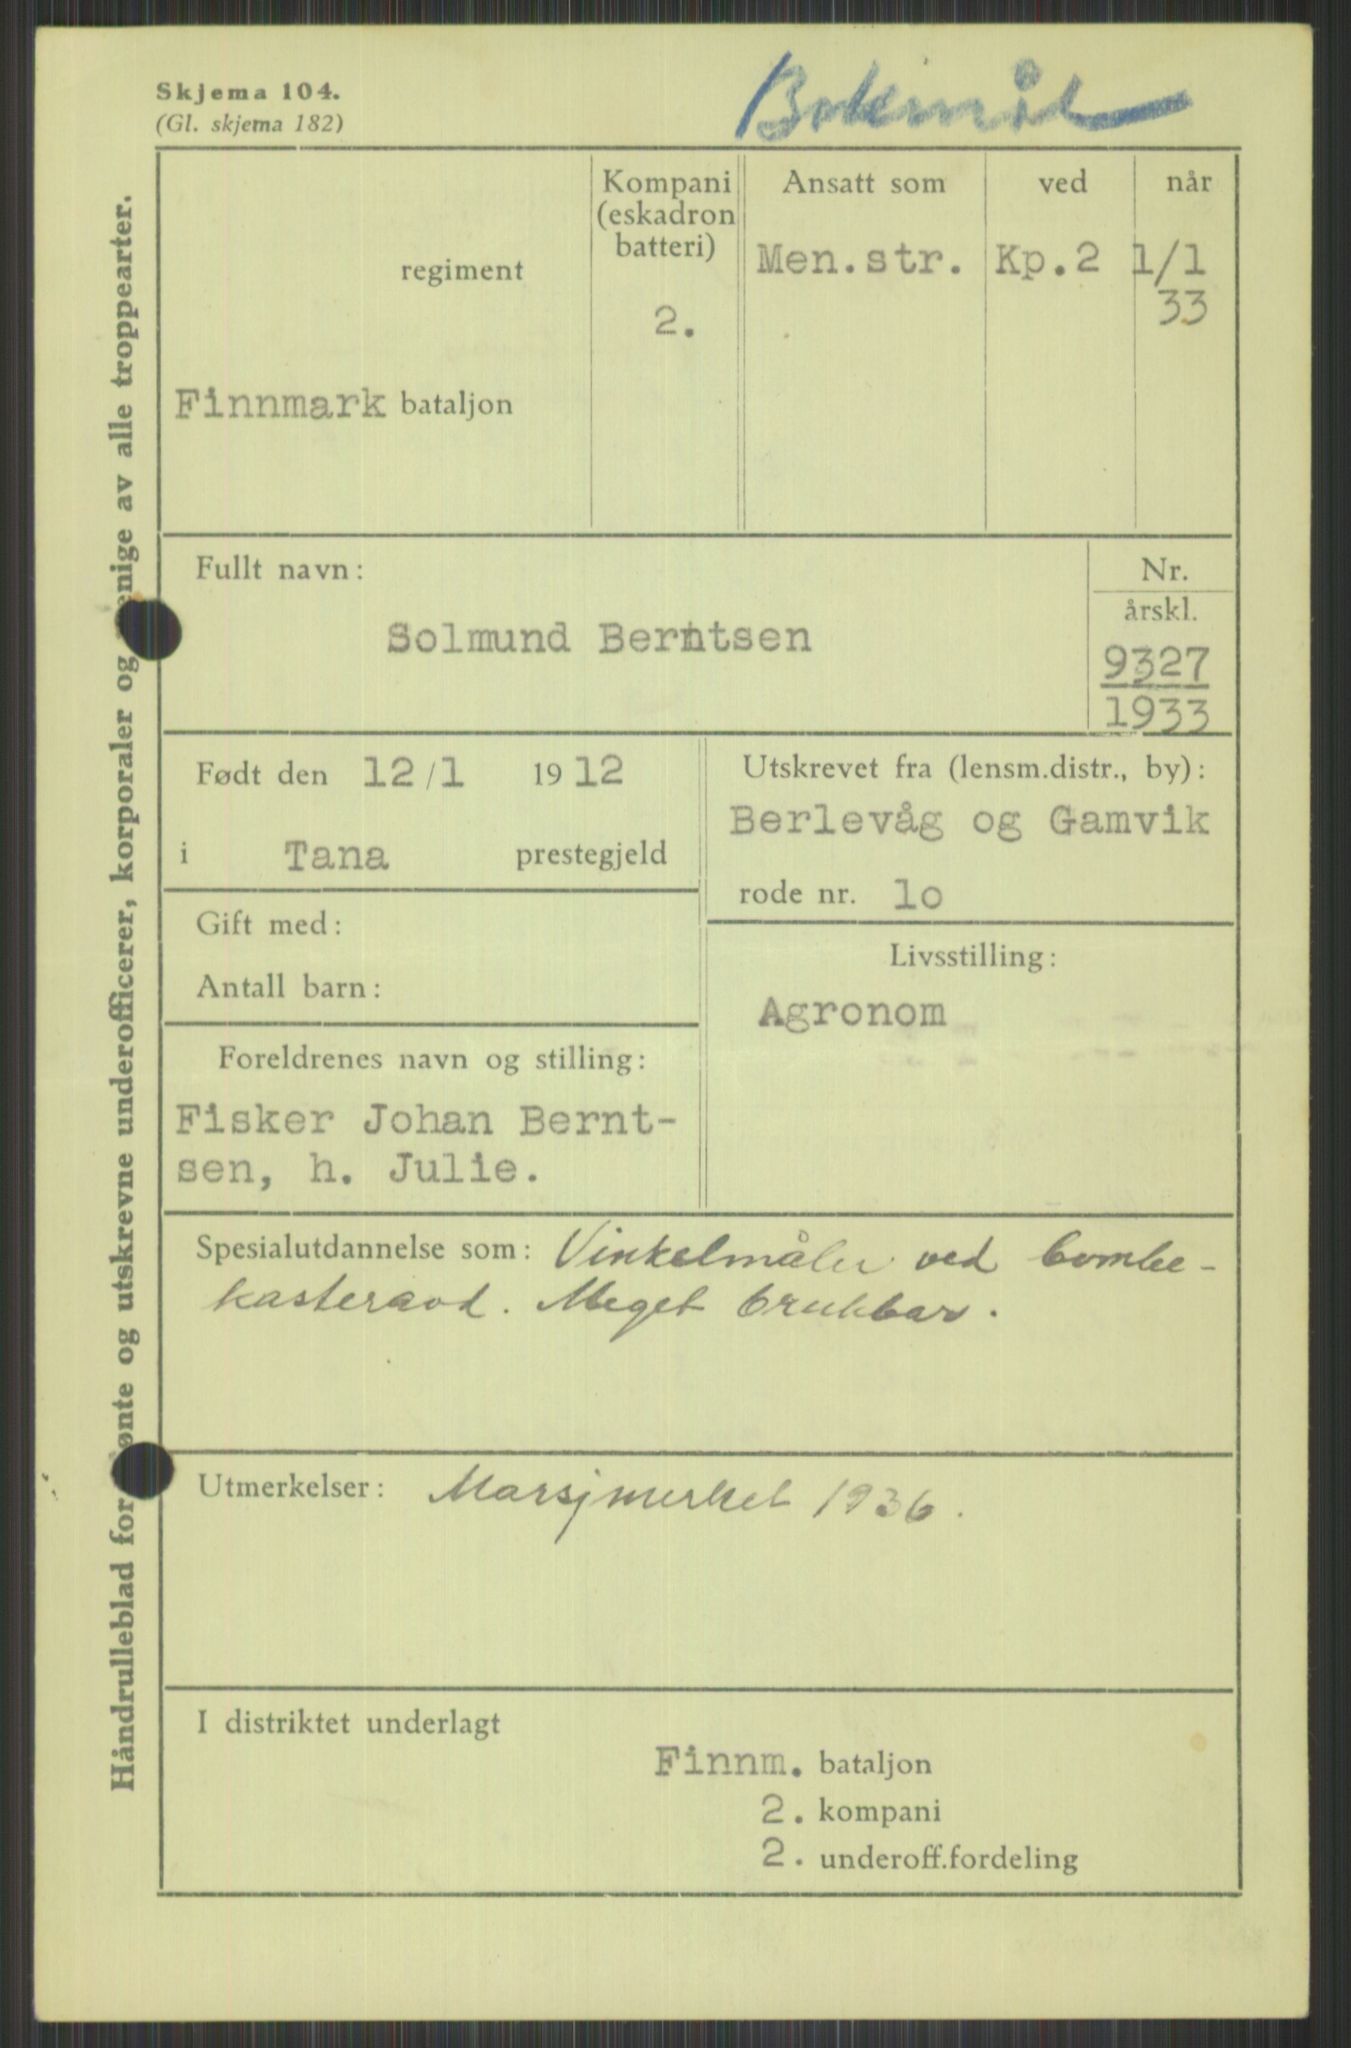 Skjema 104.
(Gl. skjema 182)
Bokmål
Håndrulleblad for ønte og utskrevne underofficerer, korporaler og enige av alle troppearter.
regiment
Finnmark bataljon
Kompani
(eskadron
batteri)
2.
Ansatt som
Men.str.
ved
Kp.2
når
1/1
33
Fullt navn:
Solmund Berntsen
Nr.
årskl.
9327
1933
Født den 12/1 1912
i Tana prestegjeld
Utskrevet fra (lensm.distr., by):
Berlevåg og Gamvik
rode nr. 1o
Gift med:
Antall barn:
Livsstilling:
Agronom
Foreldrenes navn og stilling:
Fisker Johan Bernt-
sen, h. Julie.
Spesialutdannelse som: Vinkelmåler ved bombe-
kasteravd. Meget brukbar.
Utmerkelser: Marsjmerket 1936.
I distriktet underlagt
Finnm. bataljon
2. kompani
2. underoff.fordeling